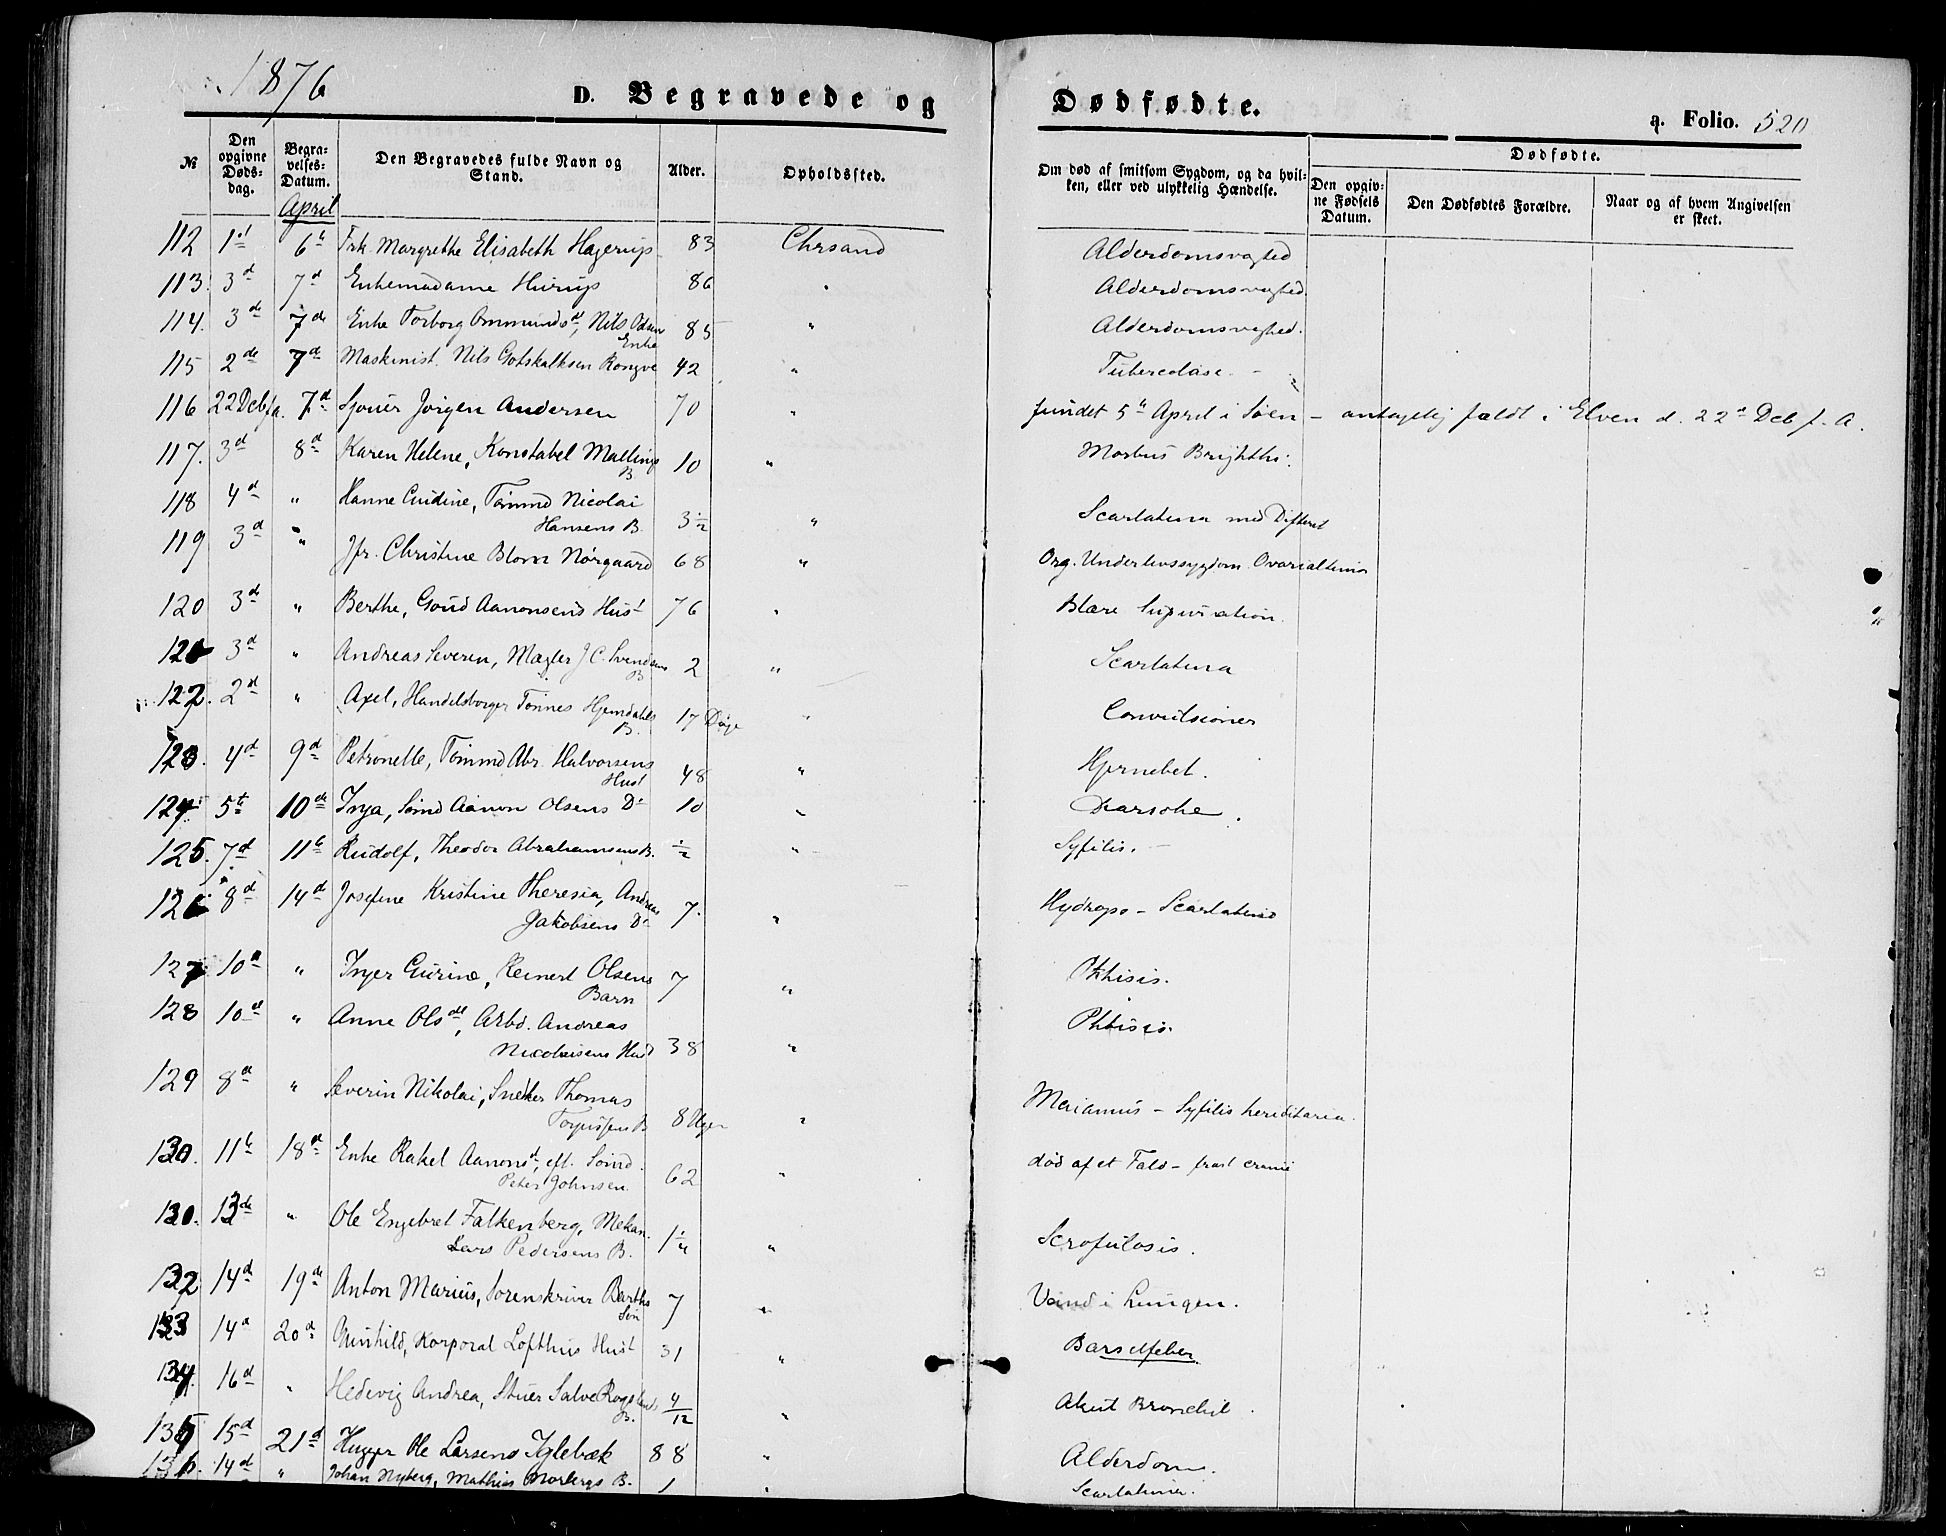 1876
D. Begravede og Dødfødte.
q. Folio. 520
№
Den opgivne Dødsdag.
Begravelses-Datum.
Den Begravedes fulde Navn og Stand.
Alder.
Opholdssted.
Om død af smitsom Sygdom, og da hvilken, eller ved ulykkelig Hændelse.
Dødfødte.
Den opgivne Fødsels Datum.
Den Dødfødtes Forældre.
Naar og af hvem Angivelsen er skeet.
April
112 1st 6te Frk. Margrethe Elisabeth Hagerup 83 Chrsand Alderdomsvaghed
113. 3d 7d Enkemadame Hurup 86 " Alderdomsvaghed
114. 3de 7de Enke Torborg Ommundsd, Nils Odsen Enke 85 " Alderdomsvaghed.
115 2de 7de Maskinist. Nils Gotskalksen Rongve 42 " Tuberculose
116 22 Decb f.a. 7d Sjouer Jørgen Andersen 70 " fundet 5te April i Søen – antagelig faldt i Elven d. 22de Decb f. A.
117. 3d 8d Karen Helene, Konstabel Mallings B. 10 " Morbus Brighthi.
118 4d " Hanne Gudine, Tømmd Nicolai Hansens B. 3½ " Scarlatina med Difterit
119 3d " Jfr. Christine Blom Nørgaard 68 " Org. Underlivssygdom Ovarialtumor
120 3de " Berthe, Gaud Aanonsens Hust 76 " Blære Suppuration
121 3d " Andreas Severin, Mægler J C. Svendsens B 2 " Scarlatina
122. 2d " Axel, Handelsborger Tønnes Hjemdahls B. 17 Dage " Convulsioner
123. 4d 9d Petronelle, Tømmd Abr. Halvorsens Hust 48 " Hjernebet.
124 5te 10de Inga, Sømd Aanon Olsens Dr 10 " Diarrohe.
125. 7d 11te Rudolf, Theodor Abrahamsens B. ½ " Syfilis.
126 8d 14d Josefine Kristine Theresia, Andreas Jakobsens Dr 7. " Hydrops – Scarlatina
127 10d " Inger Gurine, Reinert Olsens Barn 7 " Phthisis.
128 10d " Anne Olsdt, Arbd. Andreas Nicolaisens Hust 38 " Phtisis.
129 8d " Severin Nikolai, Snedker Thomas Torjussens B 8 Uger " Marasmus – Syfilis hereditaria.
130. 11te 18d Enke Rakel Aanonsd, eft. Sømd. Peter Johnsen. 62 " død af et Fald – fract cranii
130. 13de " Ole Engebret Falkenberg, Mekan. Lars Pedersens B. 1¼ " Scrofulosis.
132 14d 19de Anton Marius, Sorenskriver Barths Søn 7 " Vand i Lungen.
133 14d 20d Gunhild, Korporal Lofthus Hust 31 " Barselfeber
134. 16d " Hedevig Andrea, Stuer Salve Rogslands B. 4/12 " Akut Bronchit.
135 15d 21d Hugger Ole Larsens Iglebæk 88 " Alderdom.
136. 14d " Johan Nyberg, Mathias Norbergs B. 1 " Scarlatina.